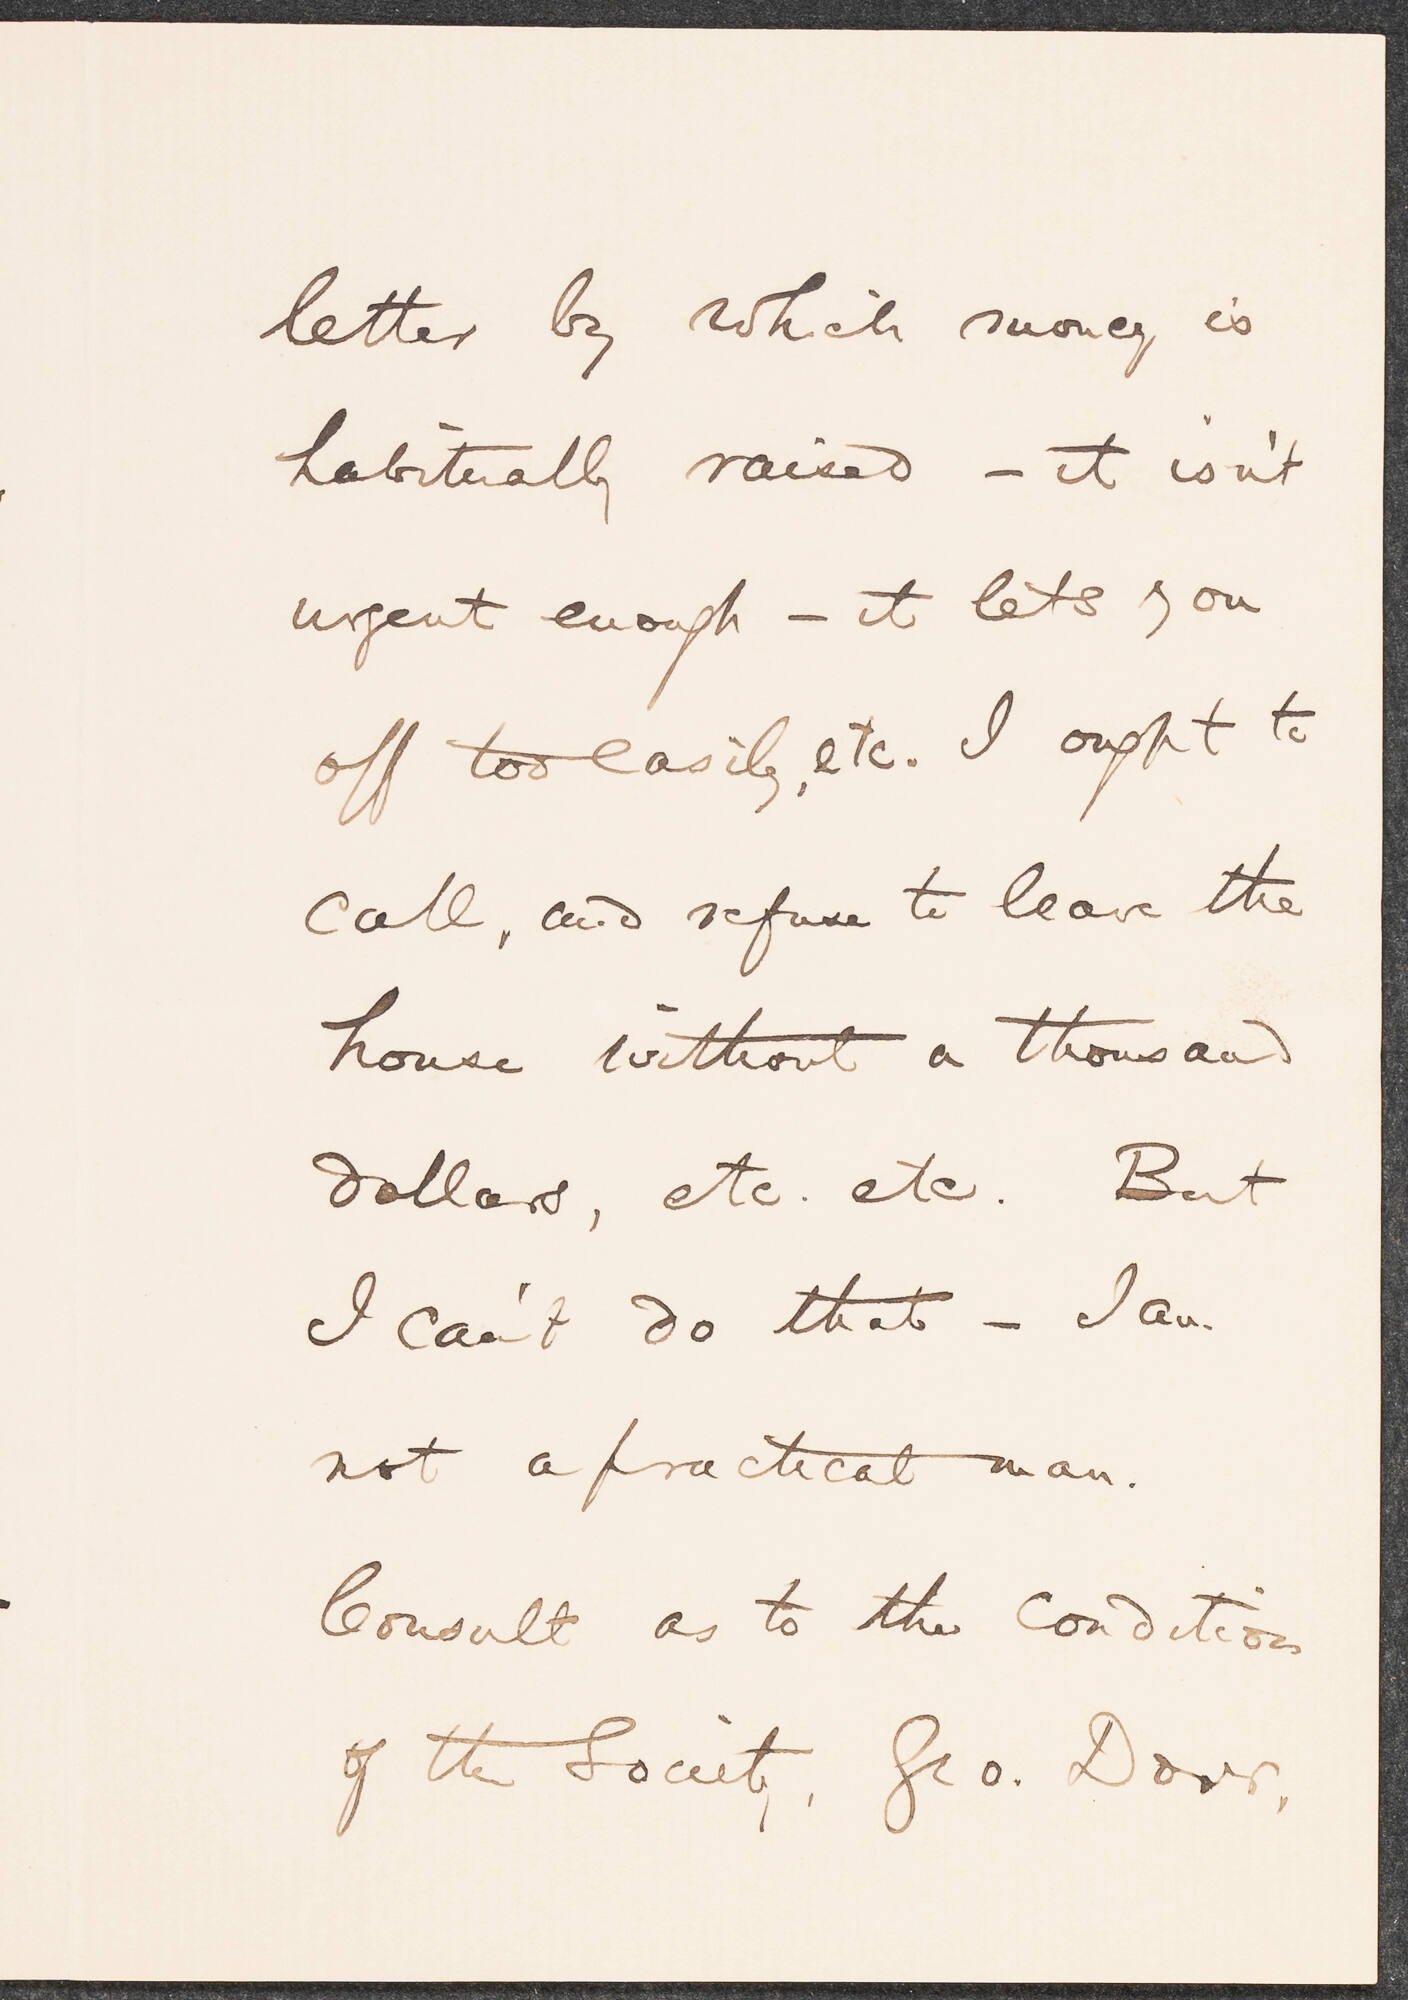 letter by which money is
habitually raised – it isn't
urgent enough – it lets you
off too easily, etc. I ought to
call, and refuse to leave the
house without a thousand
dollars, etc. etc. But
I can't do that – I am
not a practical man.
Consult as to the condition
of the Society, Geo. Dorr,